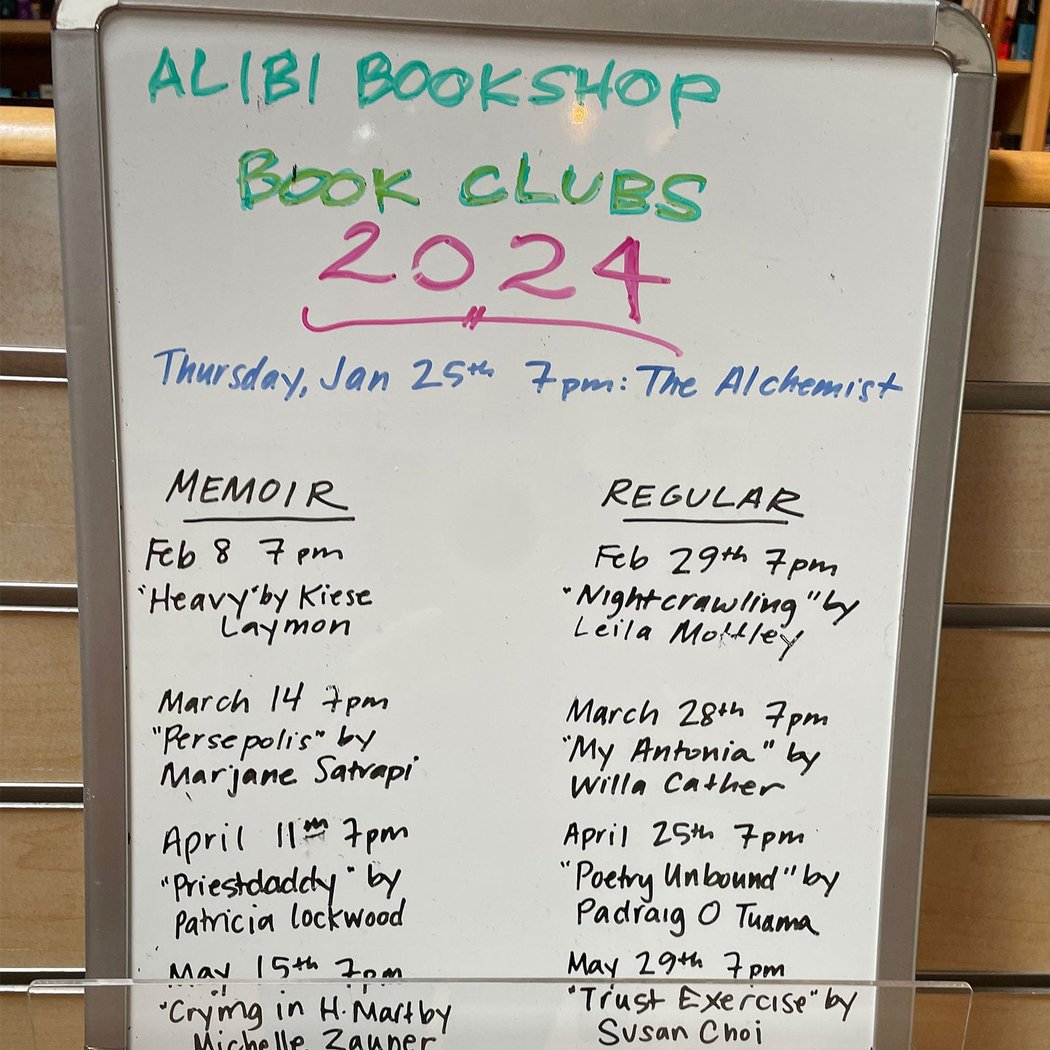 ALIBI BOOKSHOP
BOOK CLUBS
2024
Thursday, Jan 25th 7pm: The Alchemist
MEMOIR
Feb 8 7pm
"Heavy" by Kiese
Laymon
March 14 7pm
"Persepolis" by
Marjane Satrapi
April 11th 7pm
"Priestdaddy" by
Patricia Lockwood
May 15th 7pm
"Crying in H. Mart by
Michelle Zauner
REGULAR
Feb 29th 7pm
"Nightcrawling" by
Leila Mottley
March 28th 7pm
"My Antonia" by
Willa Cather
April 25th 7pm
"Poetry Unbound" by
Padraig O Tuama
May 29th 7pm
"Trust Exercise" by
Susan Choi